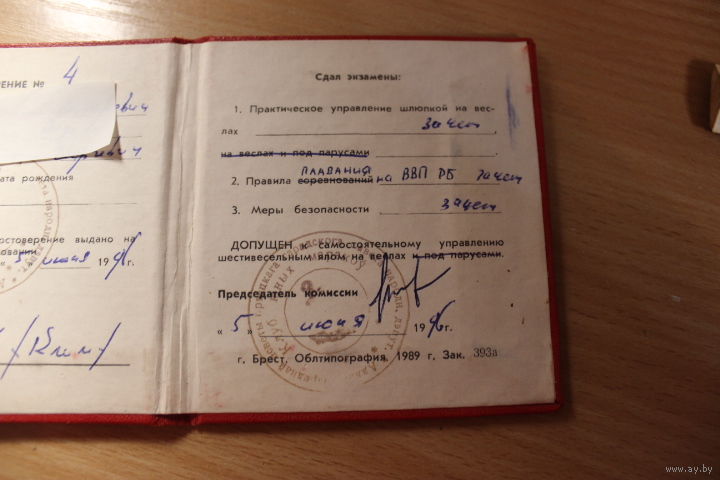 ЕНИЕ № 4
евич
ата рождения
достоверение выдано на
овании
« 5 » июня 1996г.
Сдал экзамены:
1. Практическое управление шлюпкой на вес-
лах зачет
на веслах и под парусами
2. Правила соревнований плавания на ВВП РБ зачет
3. Меры безопасности зачет
ДОПУЩЕН к самостоятельному управлению
шестивесельным ялом на веслах и под парусами.
Председатель комиссии
« 5 » июня 1996г.
г. Брест. Облтипография. 1989 г. Зак. 393а
www.ay.by